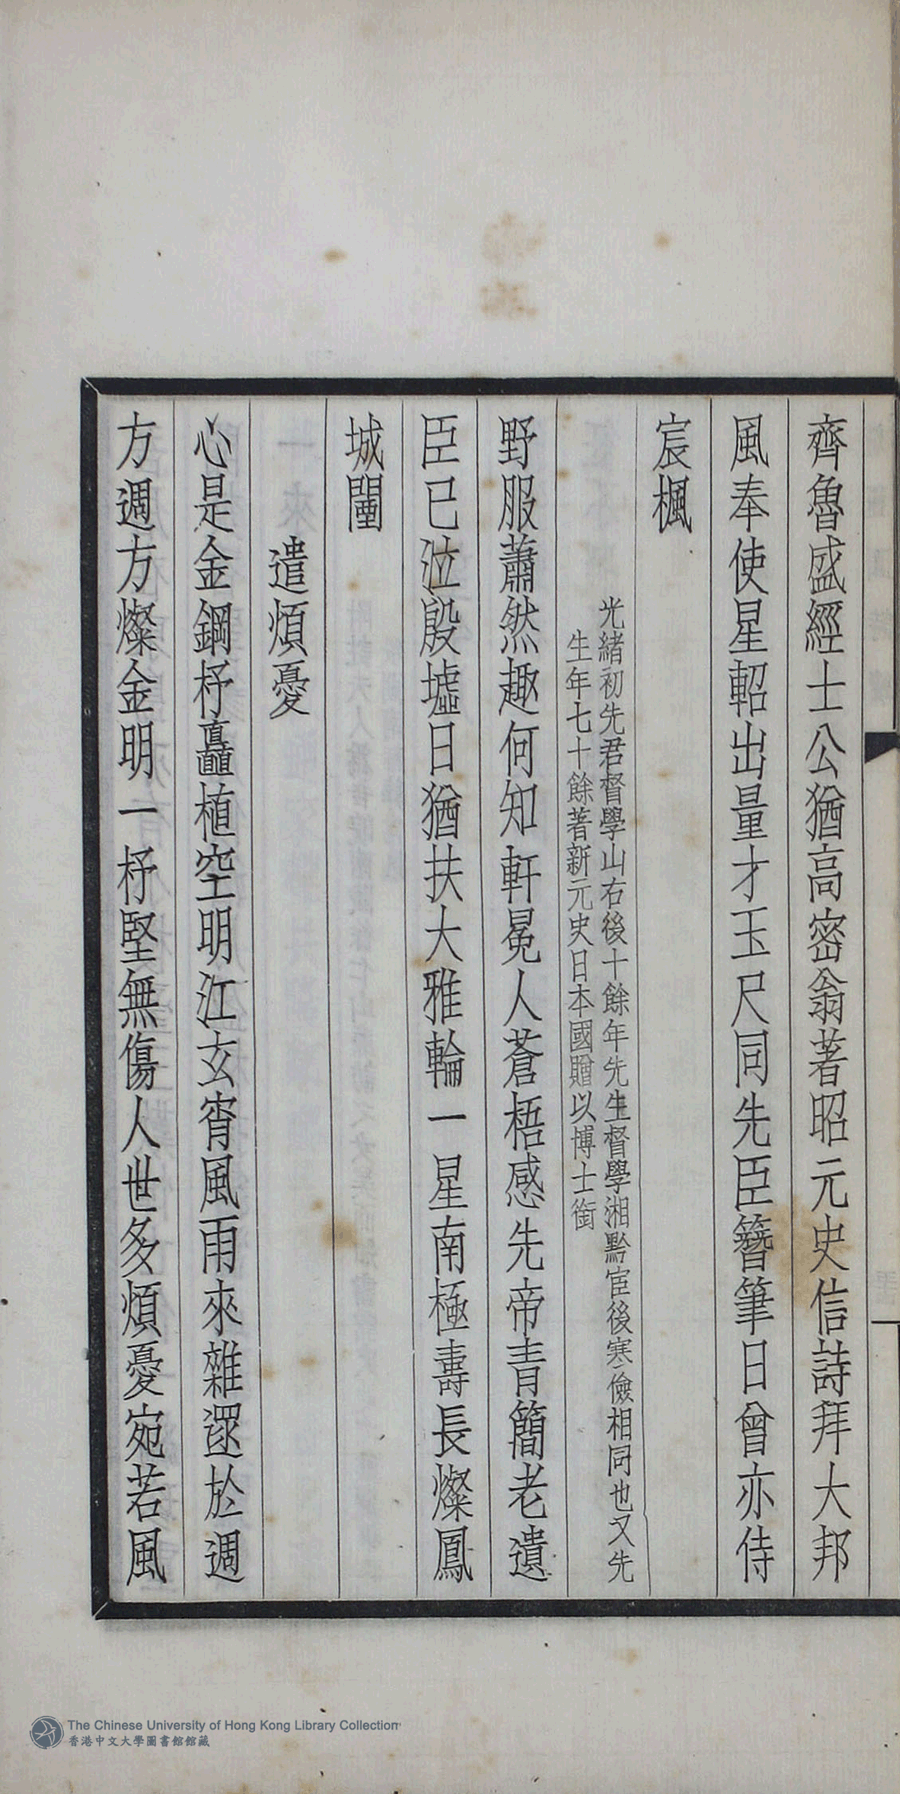 齊魯盛經士公猶高密翁著昭元史信詩拜大邦
風奉使星軺出量才玉尺同先臣簪筆日曾亦侍
宸楓
光緒初先君督學山右後十餘年先生督學湘黔宦後寒儉相同也又先
生年七十餘著新元史日本國贈以博士銜
野服蕭然趣何知軒冕人蒼梧感先帝青簡老遺
臣已泣殷墟日猶扶大雅輪一星南極壽長燦鳳
城闉
遣煩憂
心是金鋼杼矗植空明江玄宵風雨來雜遝於週
方週方燦金明一杼堅無傷人世多煩憂宛若風
The Chinese University of Hong Kong Library Collection
香港中文大學圖書館館藏